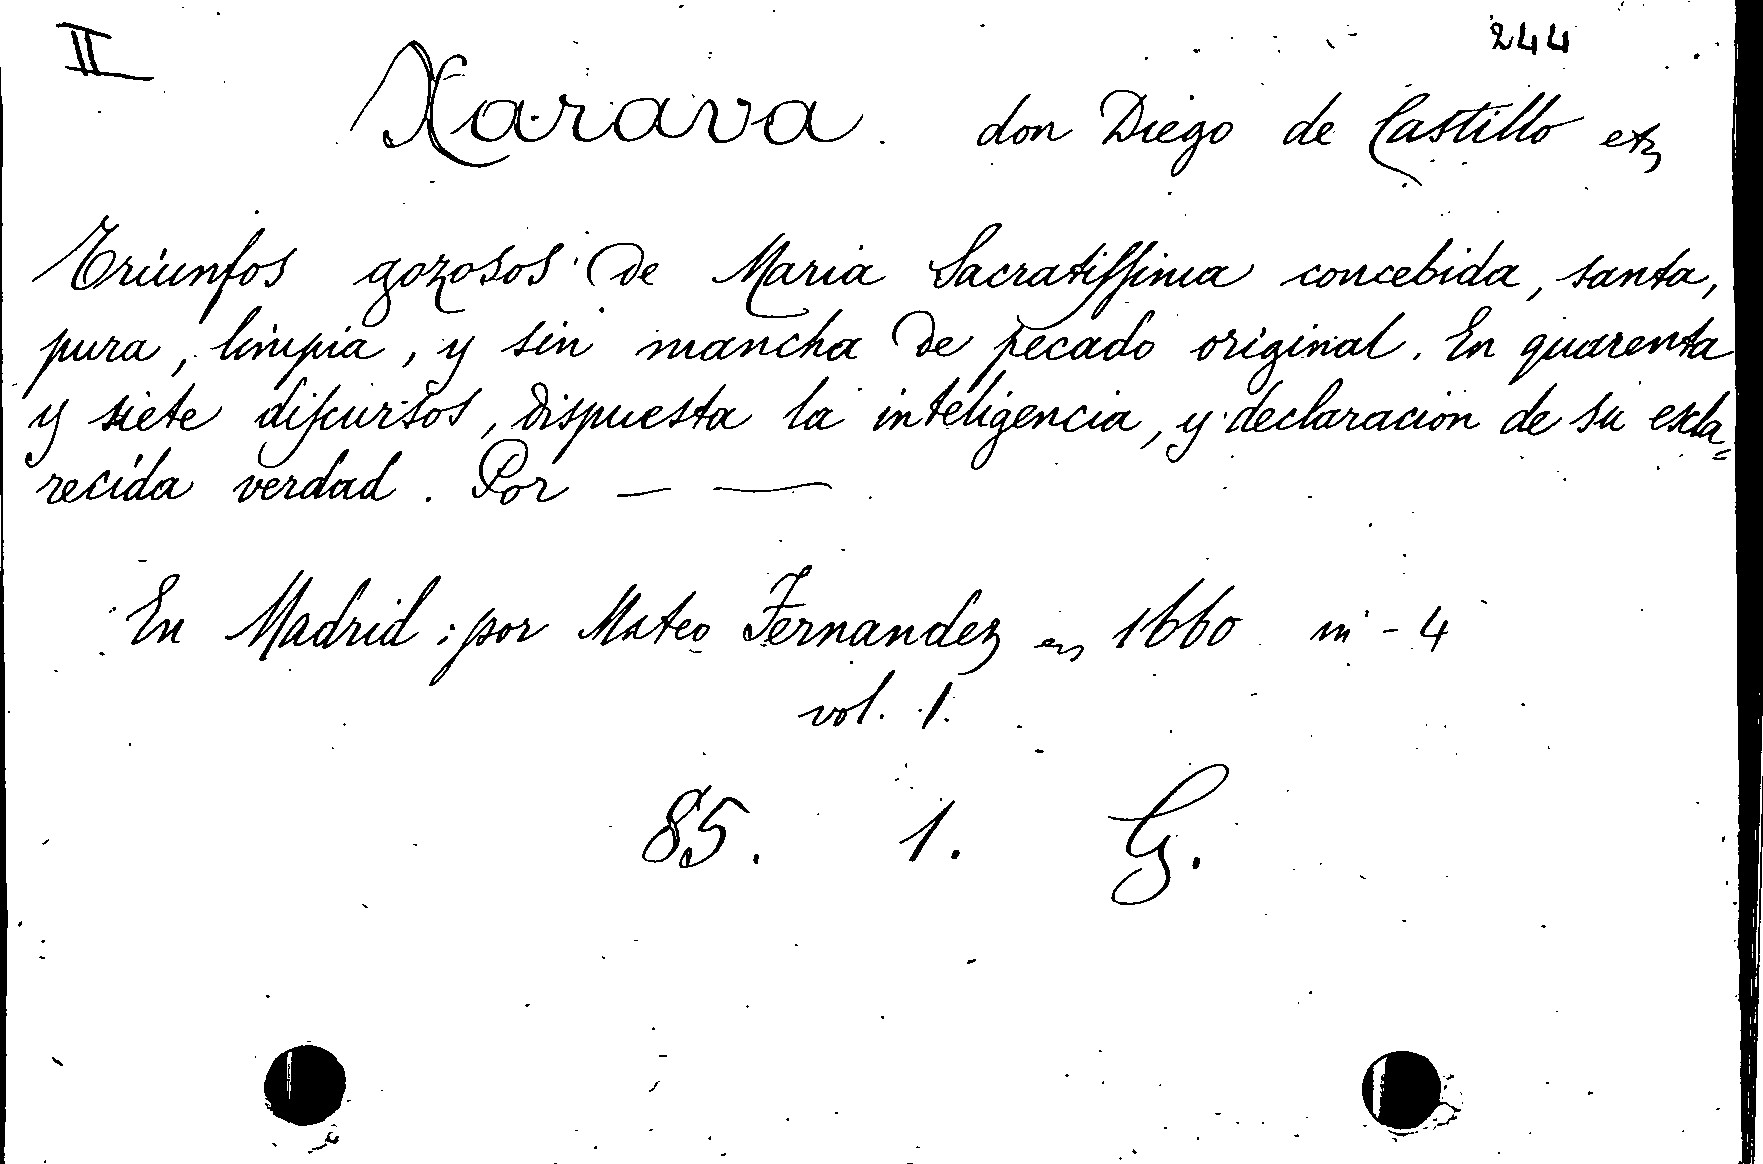 II 244
Xarava. don Diego de Castillo etz
Triunfos gozosos de Maria Sacratiſſima concebida, santa,
pura, limpia, y sin mancha de pecado original. En quarenta
y siete diſcursos, dispuesta la inteligencia, y declaracion de su escla=
recida verdad. Por — —
En Madrid: por Mateo Fernandez en 1660 in - 4
vol. 1.
85. 1. G.